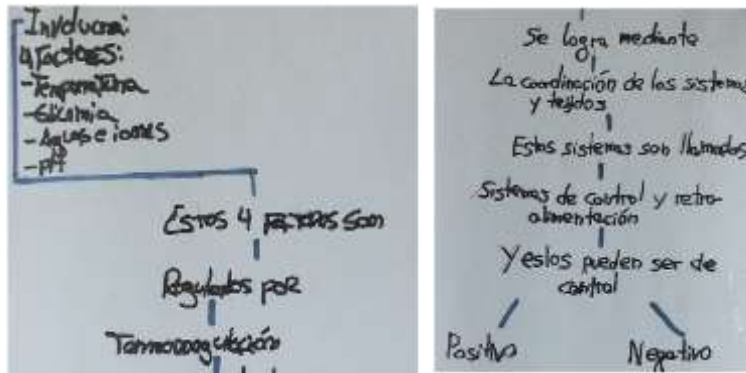 Involucra:
4 factores:
- Temperatura
- Glicemia
- Agua e iones
- pH
Estos 4 factores son
Regulados por
Termorregulación
Se logra mediante
La coordinación de los sistemas
y tejidos
Estos sistemas son llamados
Sistemas de control y retro-
alimentación
Y estos pueden ser de
control
Positivo
Negativo